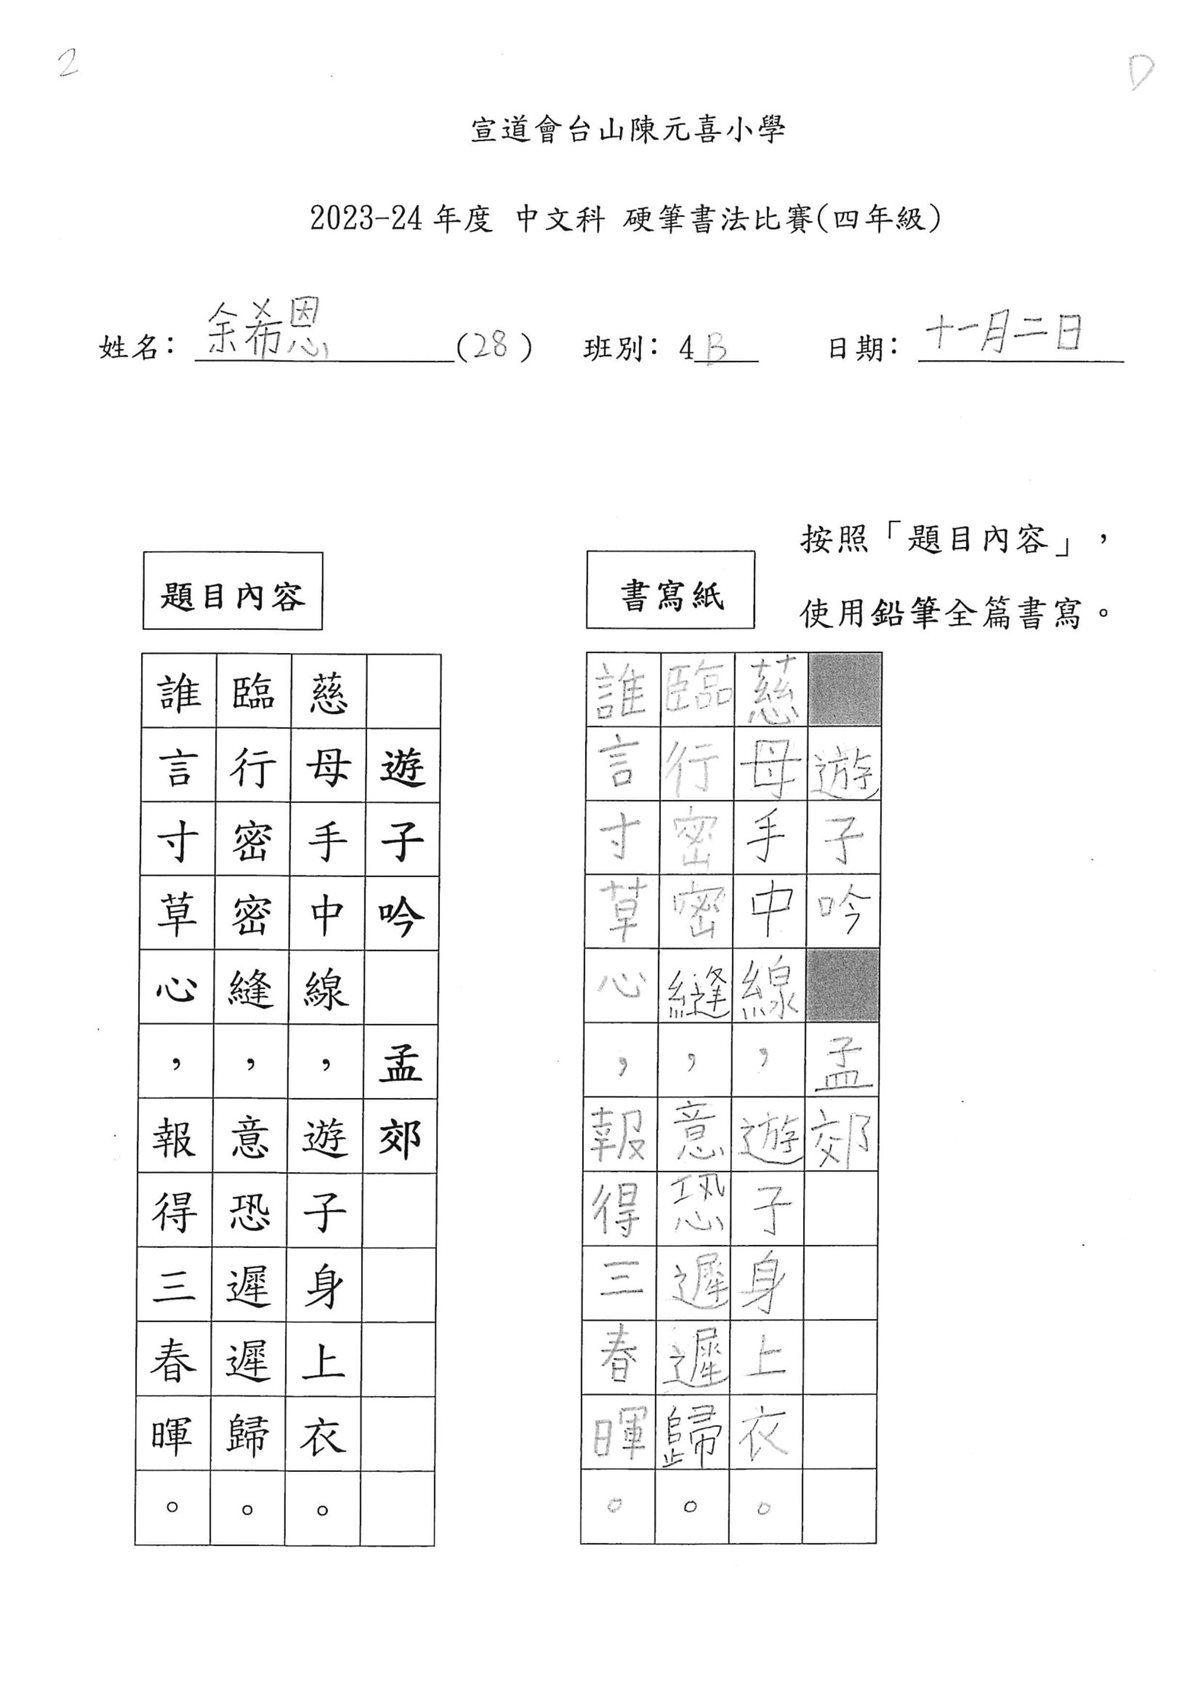 2
D
宣道會台山陳元喜小學
2023-24 年度 中文科 硬筆書法比賽(四年級)
姓名：余希恩(28) 班別：4B 日期：十一月二日
按照「題目內容」，
使用鉛筆全篇書寫。
題目內容
遊子吟 孟郊
慈母手中線，遊子身上衣。
臨行密密縫，意恐遲遲歸。
誰言寸草心，報得三春暉。
書寫紙
遊子吟 孟郊
慈母手中線，遊子身上衣。
臨行密密縫，意恐遲遲歸。
誰言寸草心，報得三春暉。